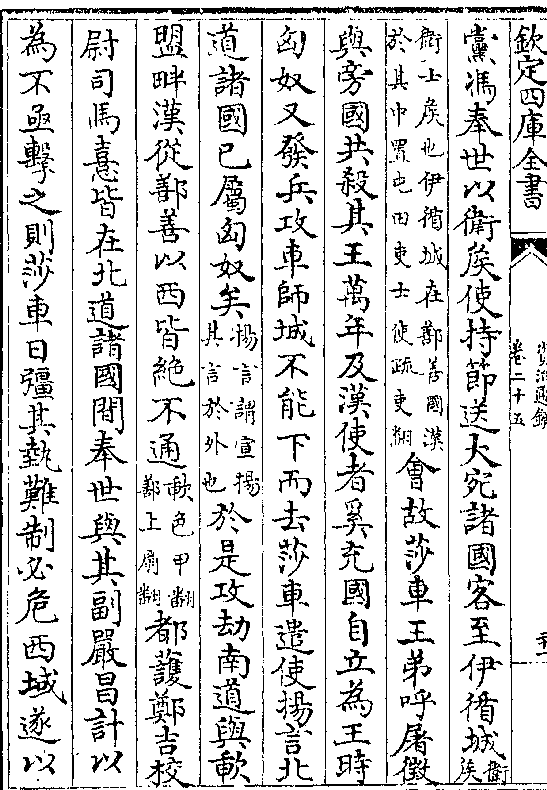 欽定四庫全書
資治通鑑
卷二十五
黨馮奉世以衛𠉀使持節送大宛諸國客至伊循城衛𠉀
衛士𠉀也伊循城在鄯善國漢
於其中置屯田吏士使疏吏翻
會故莎車王弟呼屠徵
與旁國共殺其王萬年及漢使者奚充國自立為王時
匈奴又發兵攻車師城不能下而去莎車遣使揚言北
道諸國已屬匈奴矣揚言謂宣揚
其言於外也
於是攻劫南道與歃
盟畔漢從鄯善以西皆絶不通歃色甲翻
鄯上扇翻
都䕶鄭吉校
尉司馬憙皆在北道諸國間奉世與其副嚴昌計以
為不亟擊之則莎車日彊其埶難制必危西域遂以